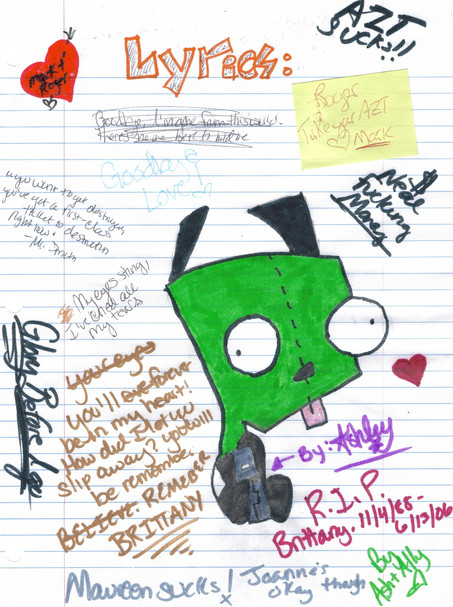 Lyrics:
AZT
SUCKS!!
Mark +
Roger
Goodbye, I'm
There's no one here to
Roger
Take your AZT
Mark
Goodbye
Love
you want to get destroyed,
you've got a first-class
ticket to destruction
Right now!
Need
Fucking
Money
My eyes sting,
I've cried all
my tears
Glory Before I go
your eyes
You'll live forever
be in my heart!
How did I let you
slip away? you will
be remember.
BELIEVE. REMEBER
BRITTANY
By: Ashley
R.I.P.
Brittany. 11/4/88-
6/13/06
By
Ash + Ally
Maureen sucks!
Joanne's
okay though